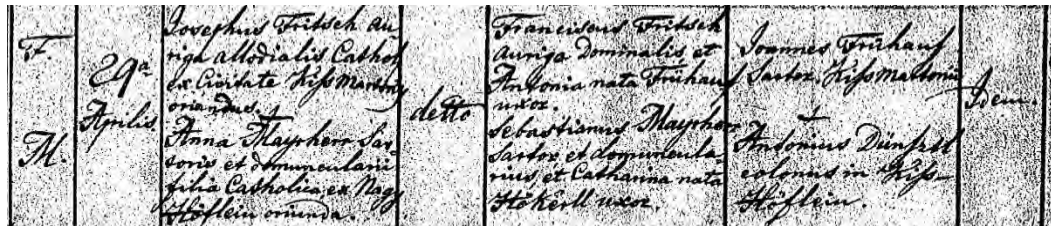 F.
M.
29a
Aprilis.
Josephus Fritsch au-
riga allodialis Cathol.
ex Civitate Kiss Martony
oriundus.
+
Anna Mayrherr Sar-
toris et domuncularii
filia Catholica ex Nagy
Höflein oriunda.
detto
Franciscus Fritsch
auriga Dominalis et
Antonia nata Frühauf
uxor.
Sebastianus Mayrherr
Sartor et domuncula-
rius, et Catharina nata
Hökerll uxor.
Joannes Frühauf
Sartor Kiss Martonii
+
Antonius Dünstl
colonus in Kiss-
Höflein.
Idem.